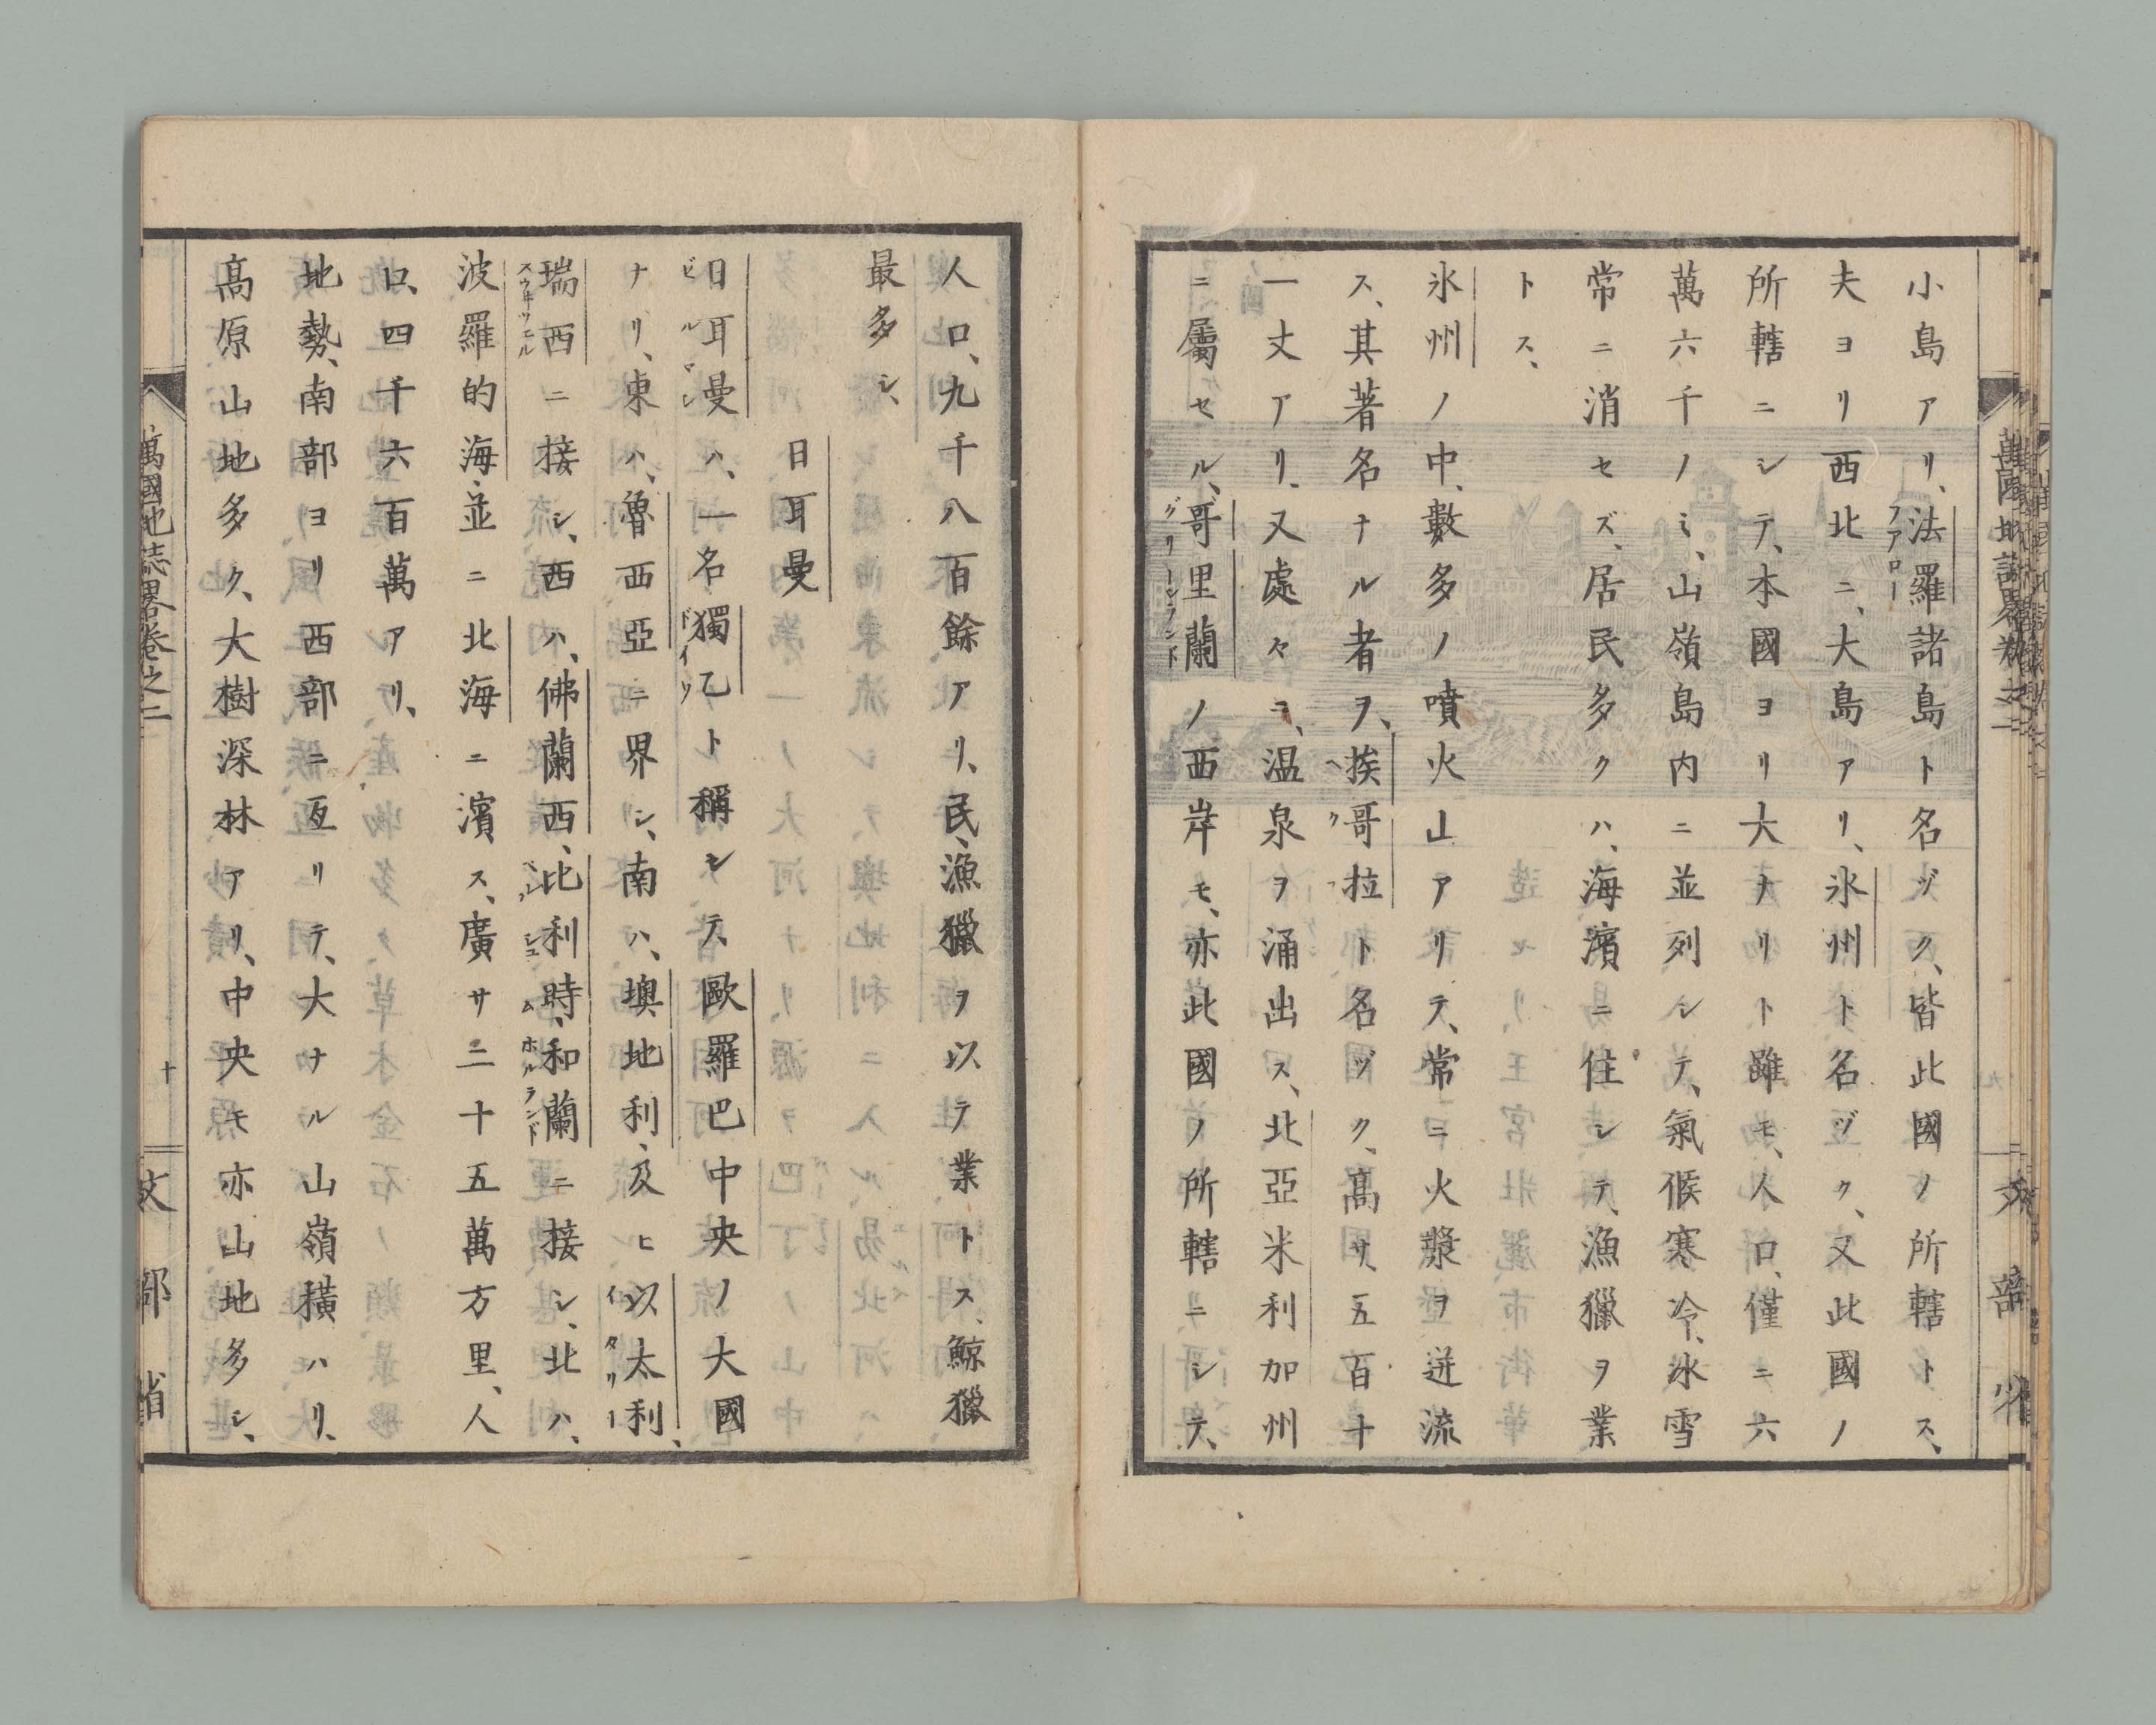 小島アリ、法羅諸島ト名ヅク、皆此國ノ所轄トス、
ファロー
夫ヨリ西北ニ、大島アリ、氷州ト名ヅク、又此國ノ
所轄ニシテ、本國ヨリ大ナリト雖モ、人口、僅ニ六
萬六千ノミ、山嶺島内ニ並列シテ、氣候寒冷、氷雪
常ニ消セズ、居民多クハ、海濱ニ住シテ、漁獵ヲ業
トス、
氷州ノ中、數多ノ噴火山アリテ、常ニ火漿ヲ迸流
ス、其著名ナル者ヲ、挨哥拉ト名ヅク、高サ、五百十
ヘクラ
一丈アリ、又處々ヨ、温泉ヲ涌出ス、北亞米利加州
ニ屬セル、哥里蘭ノ西岸モ、亦此國ノ所轄ニシテ、
グリーンランド
人口、九千八百餘アリ、民、漁獵ヲ以テ業トス、鯨獵
最多シ、
日耳曼
日耳曼ハ、一名獨乙ト稱シテ、歐羅巴中央ノ大國
ゼルマン
ドイツ
ナリ、東ハ、魯西亞ニ界シ、南ハ、墺地利、及ヒ以太利、
イタリー
瑞西ニ接シ、西ハ、佛蘭西、比利時、和蘭ニ接シ、北ハ、
スウヰツエル
ベルジユム
ホルランド
波羅的海、並ニ北海ニ濱ス、廣サ二十五萬方里、人
口、四千六百萬アリ、
地勢、南部ヨリ西部ニ亙リテ、大ナル山嶺横ハリ、
高原山地多ク、大樹深林アリ、中央モ亦山地多シ、
萬國地誌畧卷之二
十
文部省